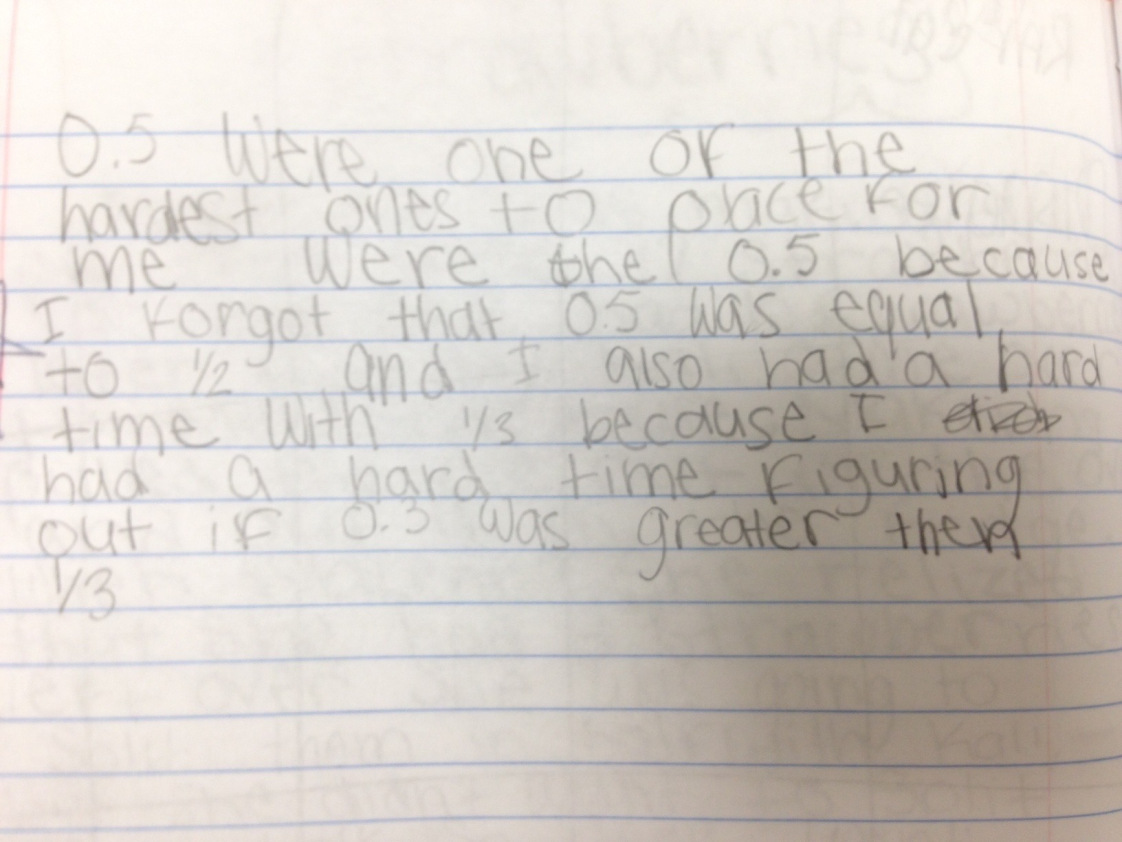 0.5 were one of the
hardest ones to place for
me were the 0.5 because
I forgot that 0.5 was equal
to 1/2 and I also had a hard
time with 1/3 because I
had a hard time figuring
out if 0.3 was greater then
1/3